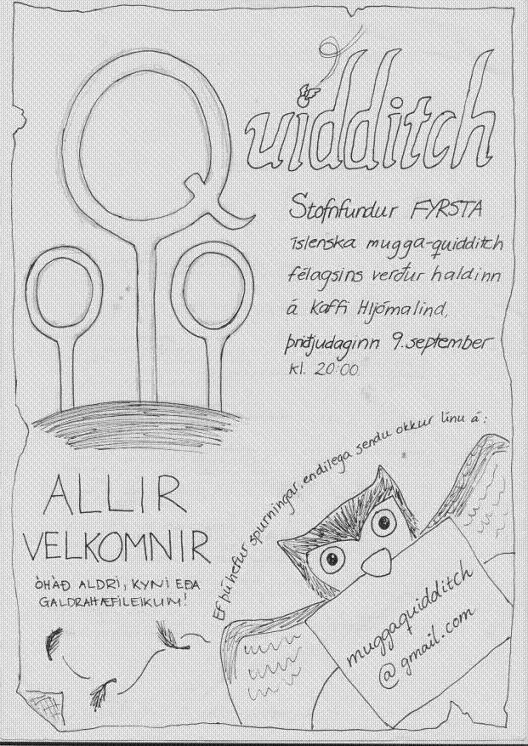 Quidditch
Stofnfundur FYRSTA
íslenska mugga-quidditch
félagsins verður haldinn
á Kaffi Hljómalind,
þriðjudaginn 9. september
kl. 20:00
Ef þú hefur spurningar, endilega sendu okkur línu á:
ALLIR
VELKOMNIR
ÓHÁÐ ALDRI, KYNI EÐA
GALDRAHÆFILEIKUM!
muggaquidditch
@gmail.com